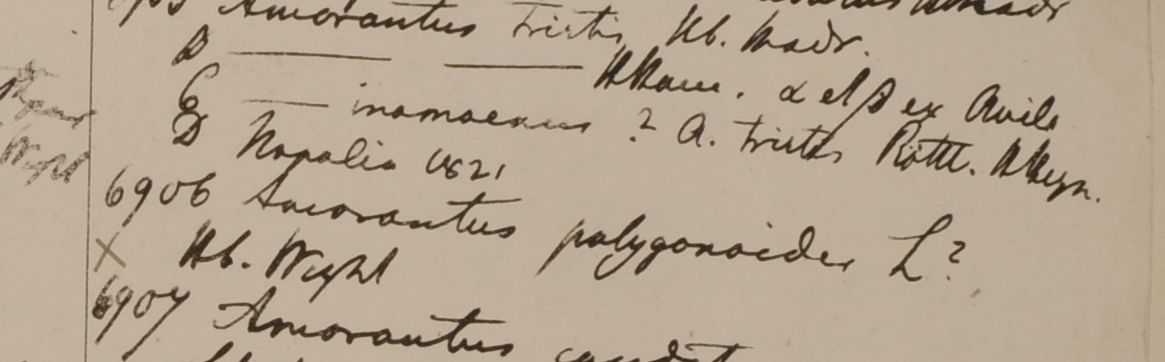 Amarantus tristis Hb. Madr.
B — — HHam. α et β ex Avila
C — inamaenus ? A. tristis Rottl. HHeyn.
D Napalia 1821
6906 Amarantus polygonoides L?
× Hb. Wight
Wight
6907 Amarantus